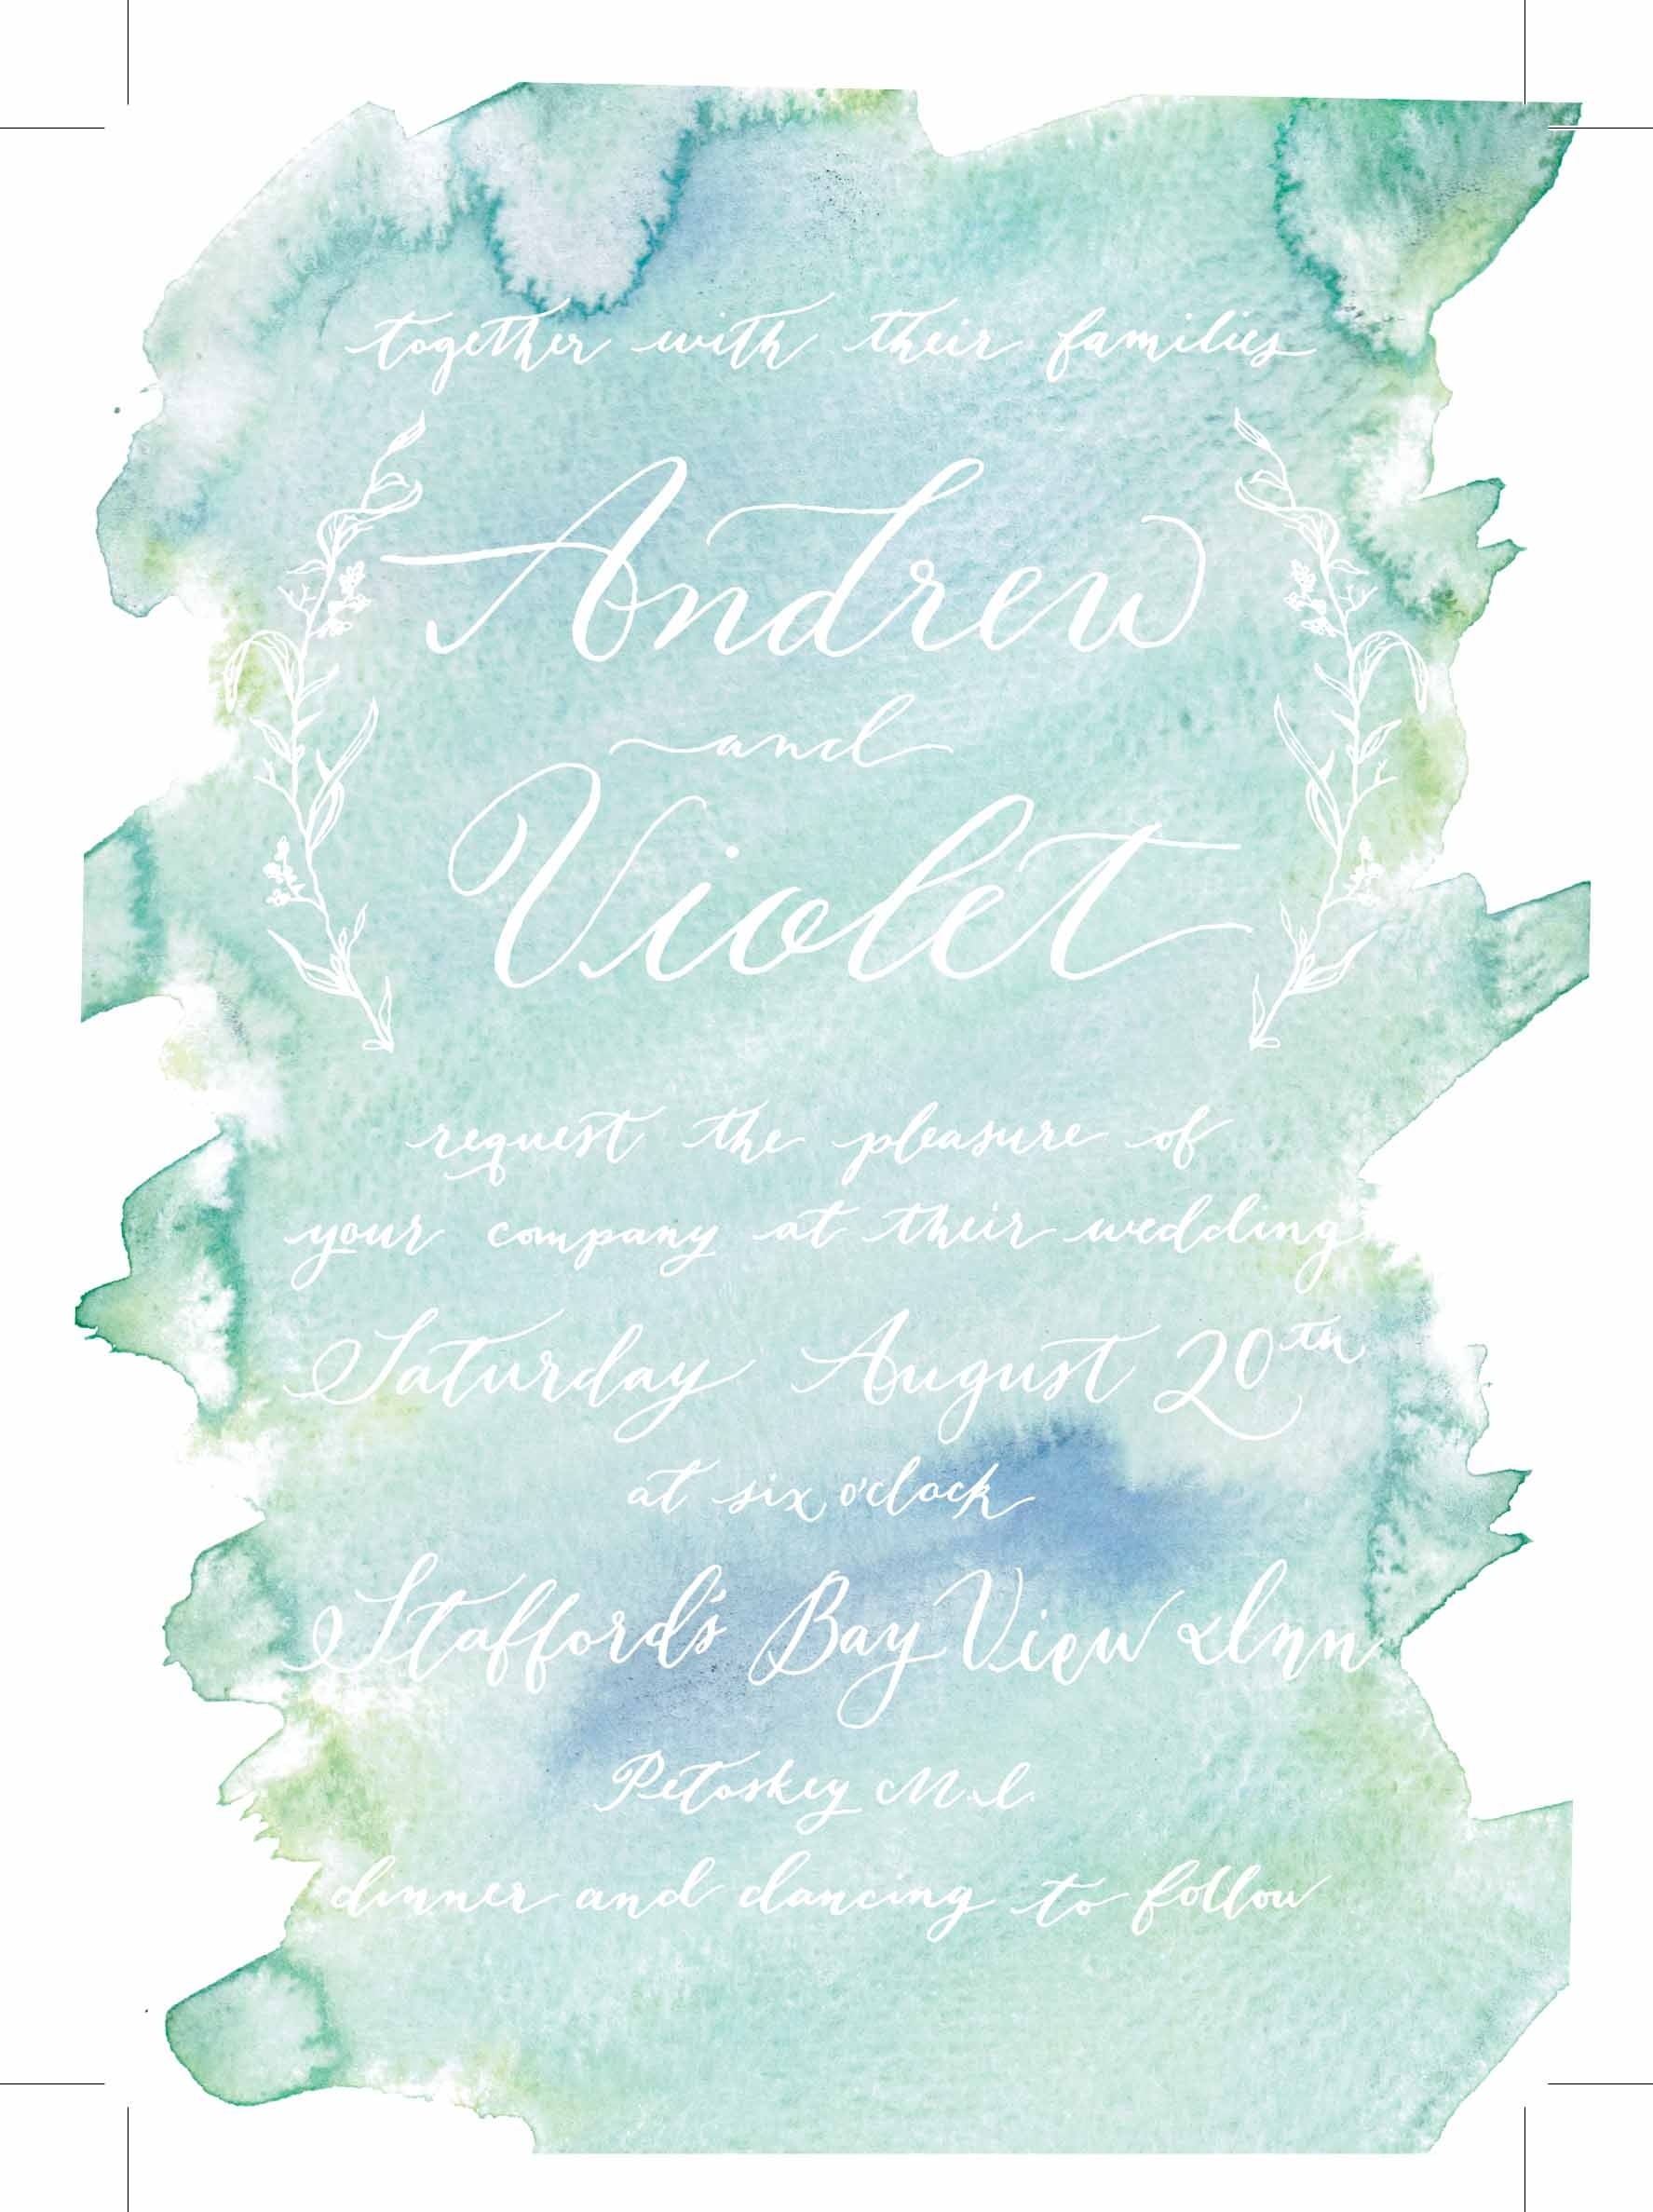 together with their families
Andrew
and
Violet
request the pleasure of
your company at their wedding
Saturday August 20th
at six o'clock
Stafford's Bay View Inn
Petoskey M.I.
dinner and dancing to follow